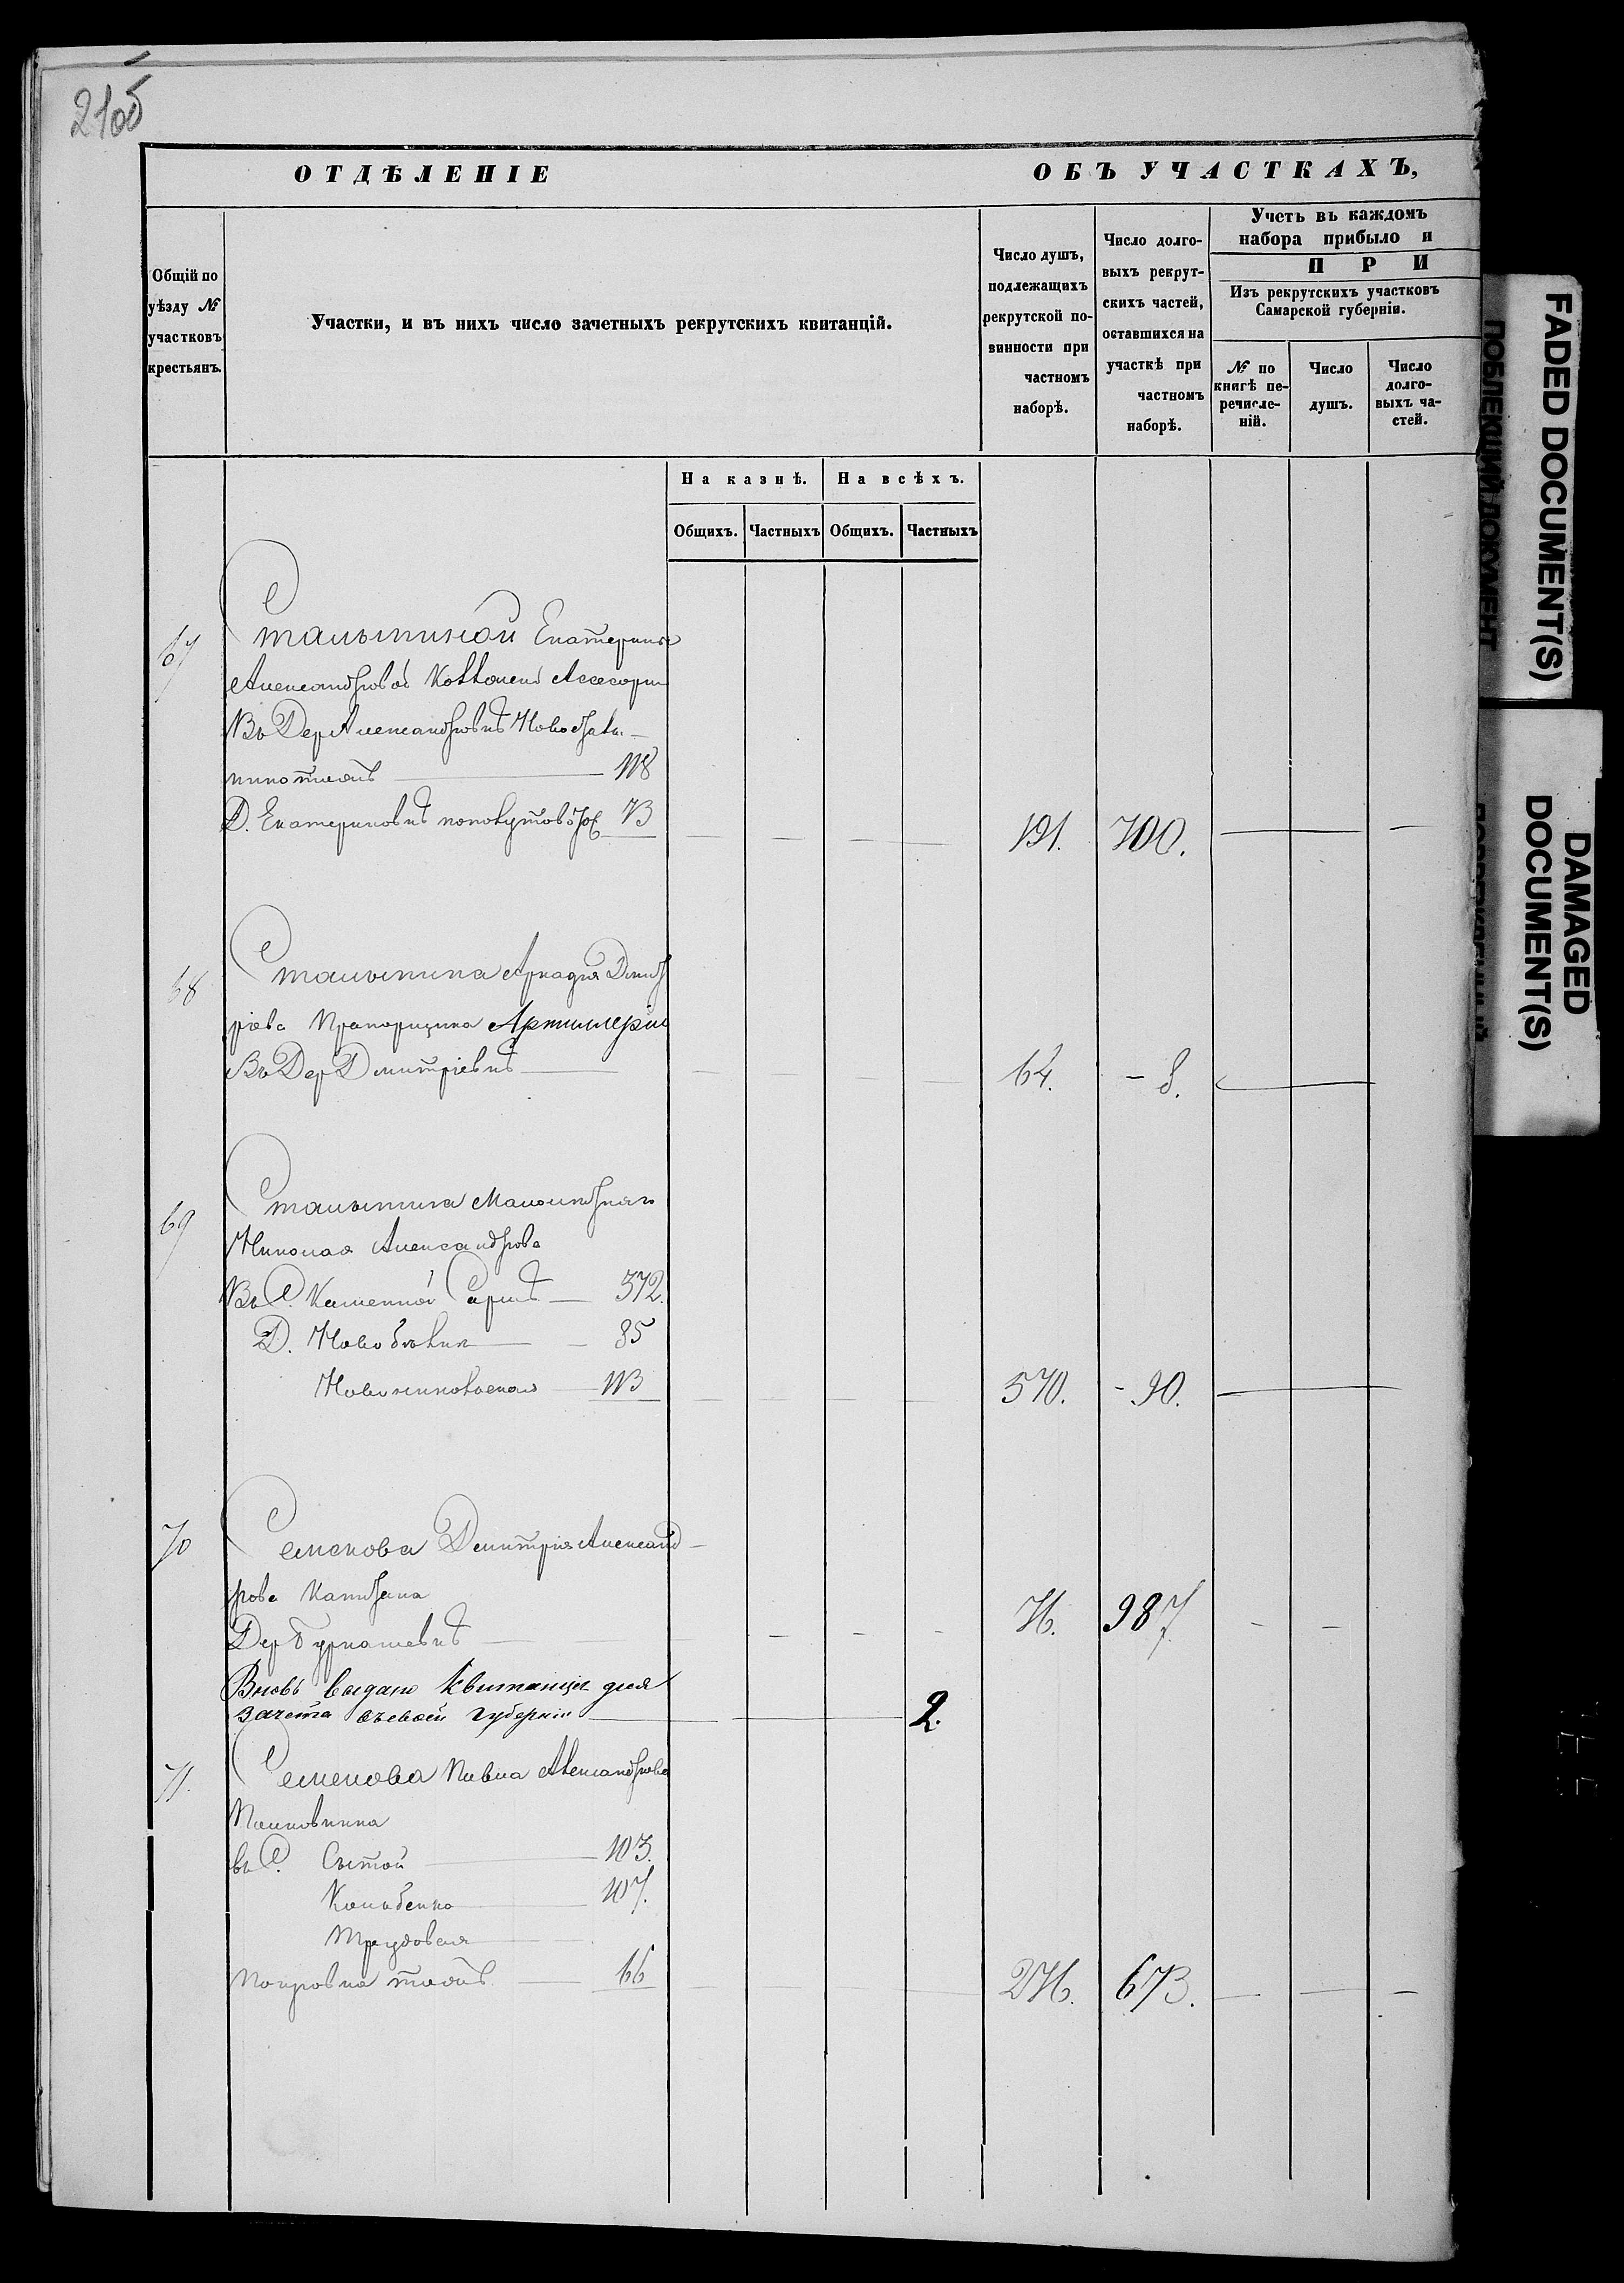 21об
ОТДѢЛЕНІЕ
ОБЪ УЧАСТКАХЪ,
Общій по
уѣзду №
участковъ
крестьянъ.
Участки, и въ нихъ число зачетныхъ рекрутскихъ квитанцій.
Число душъ,
подлежащихъ
рекрутской по-
винности при
частномъ
наборѣ.
Число долго-
выхъ рекрут-
скихъ частей,
оставшихся на
участкѣ при
частномъ
наборѣ.
Учетъ въ каждомъ
набора прибыло и
П Р И
Изъ рекрутскихъ участковъ
Самарской губерніи.
№ по
книгѣ пе-
речисле-
ній.
Число
душъ.
Число
долго-
выхъ ча-
стей.
На казнѣ.
На всѣхъ.
Общихъ.
Частныхъ
Общихъ.
Частныхъ
67
Столыпиной Екатерины
Александровой Коллежск Асесорши
Въ Дер Александровкѣ
тожъ — 118
Д. Екатериновкѣ 73
191. 700.
68
Столыпина Аркадія Дмит
ріева Прапорщика Артиллеріи
Въ Дер Дмитріевкѣ —
64. - 8.
69
Столыпина
Николая Александрова
Въ С. Каменной Сармѣ — 372.
Д. — 85
— 113
570. - 90.
70
Семенова Дмитрія Александ-
рова Капитана
Дер Бурнашевкѣ —
76. 987
Вновь выдано Квитанцій для
зачета въ своей губерніи — 2.
71.
Семенова Павла Александрова
Полковника
въ С. Сытой — 103.
Колыбенка — 107.
Трудовая
Покровка тожъ — 66
276. 673.
FADED DOCUMENT(S)
ПОБЛЕКШИЙ ДОКУМЕНТ
DAMAGED
DOCUMENT(S)